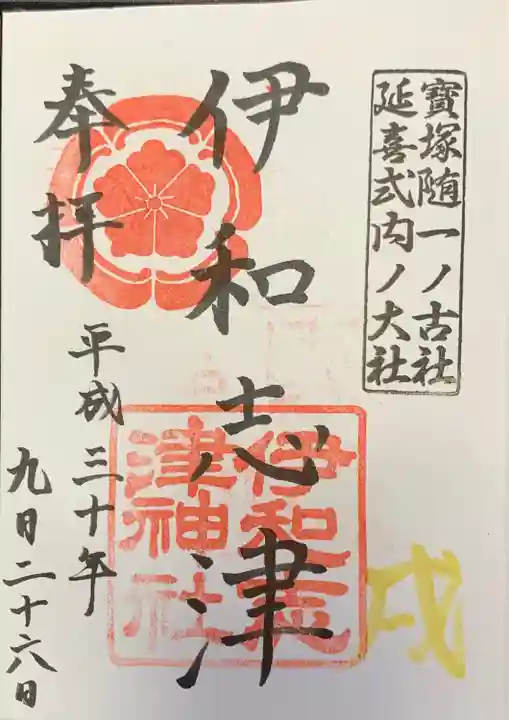 寳塚随一ノ古社
延喜式内ノ大社
伊和志津
奉拝
平成三十年
九日二十六日
伊和志
津神社
戌